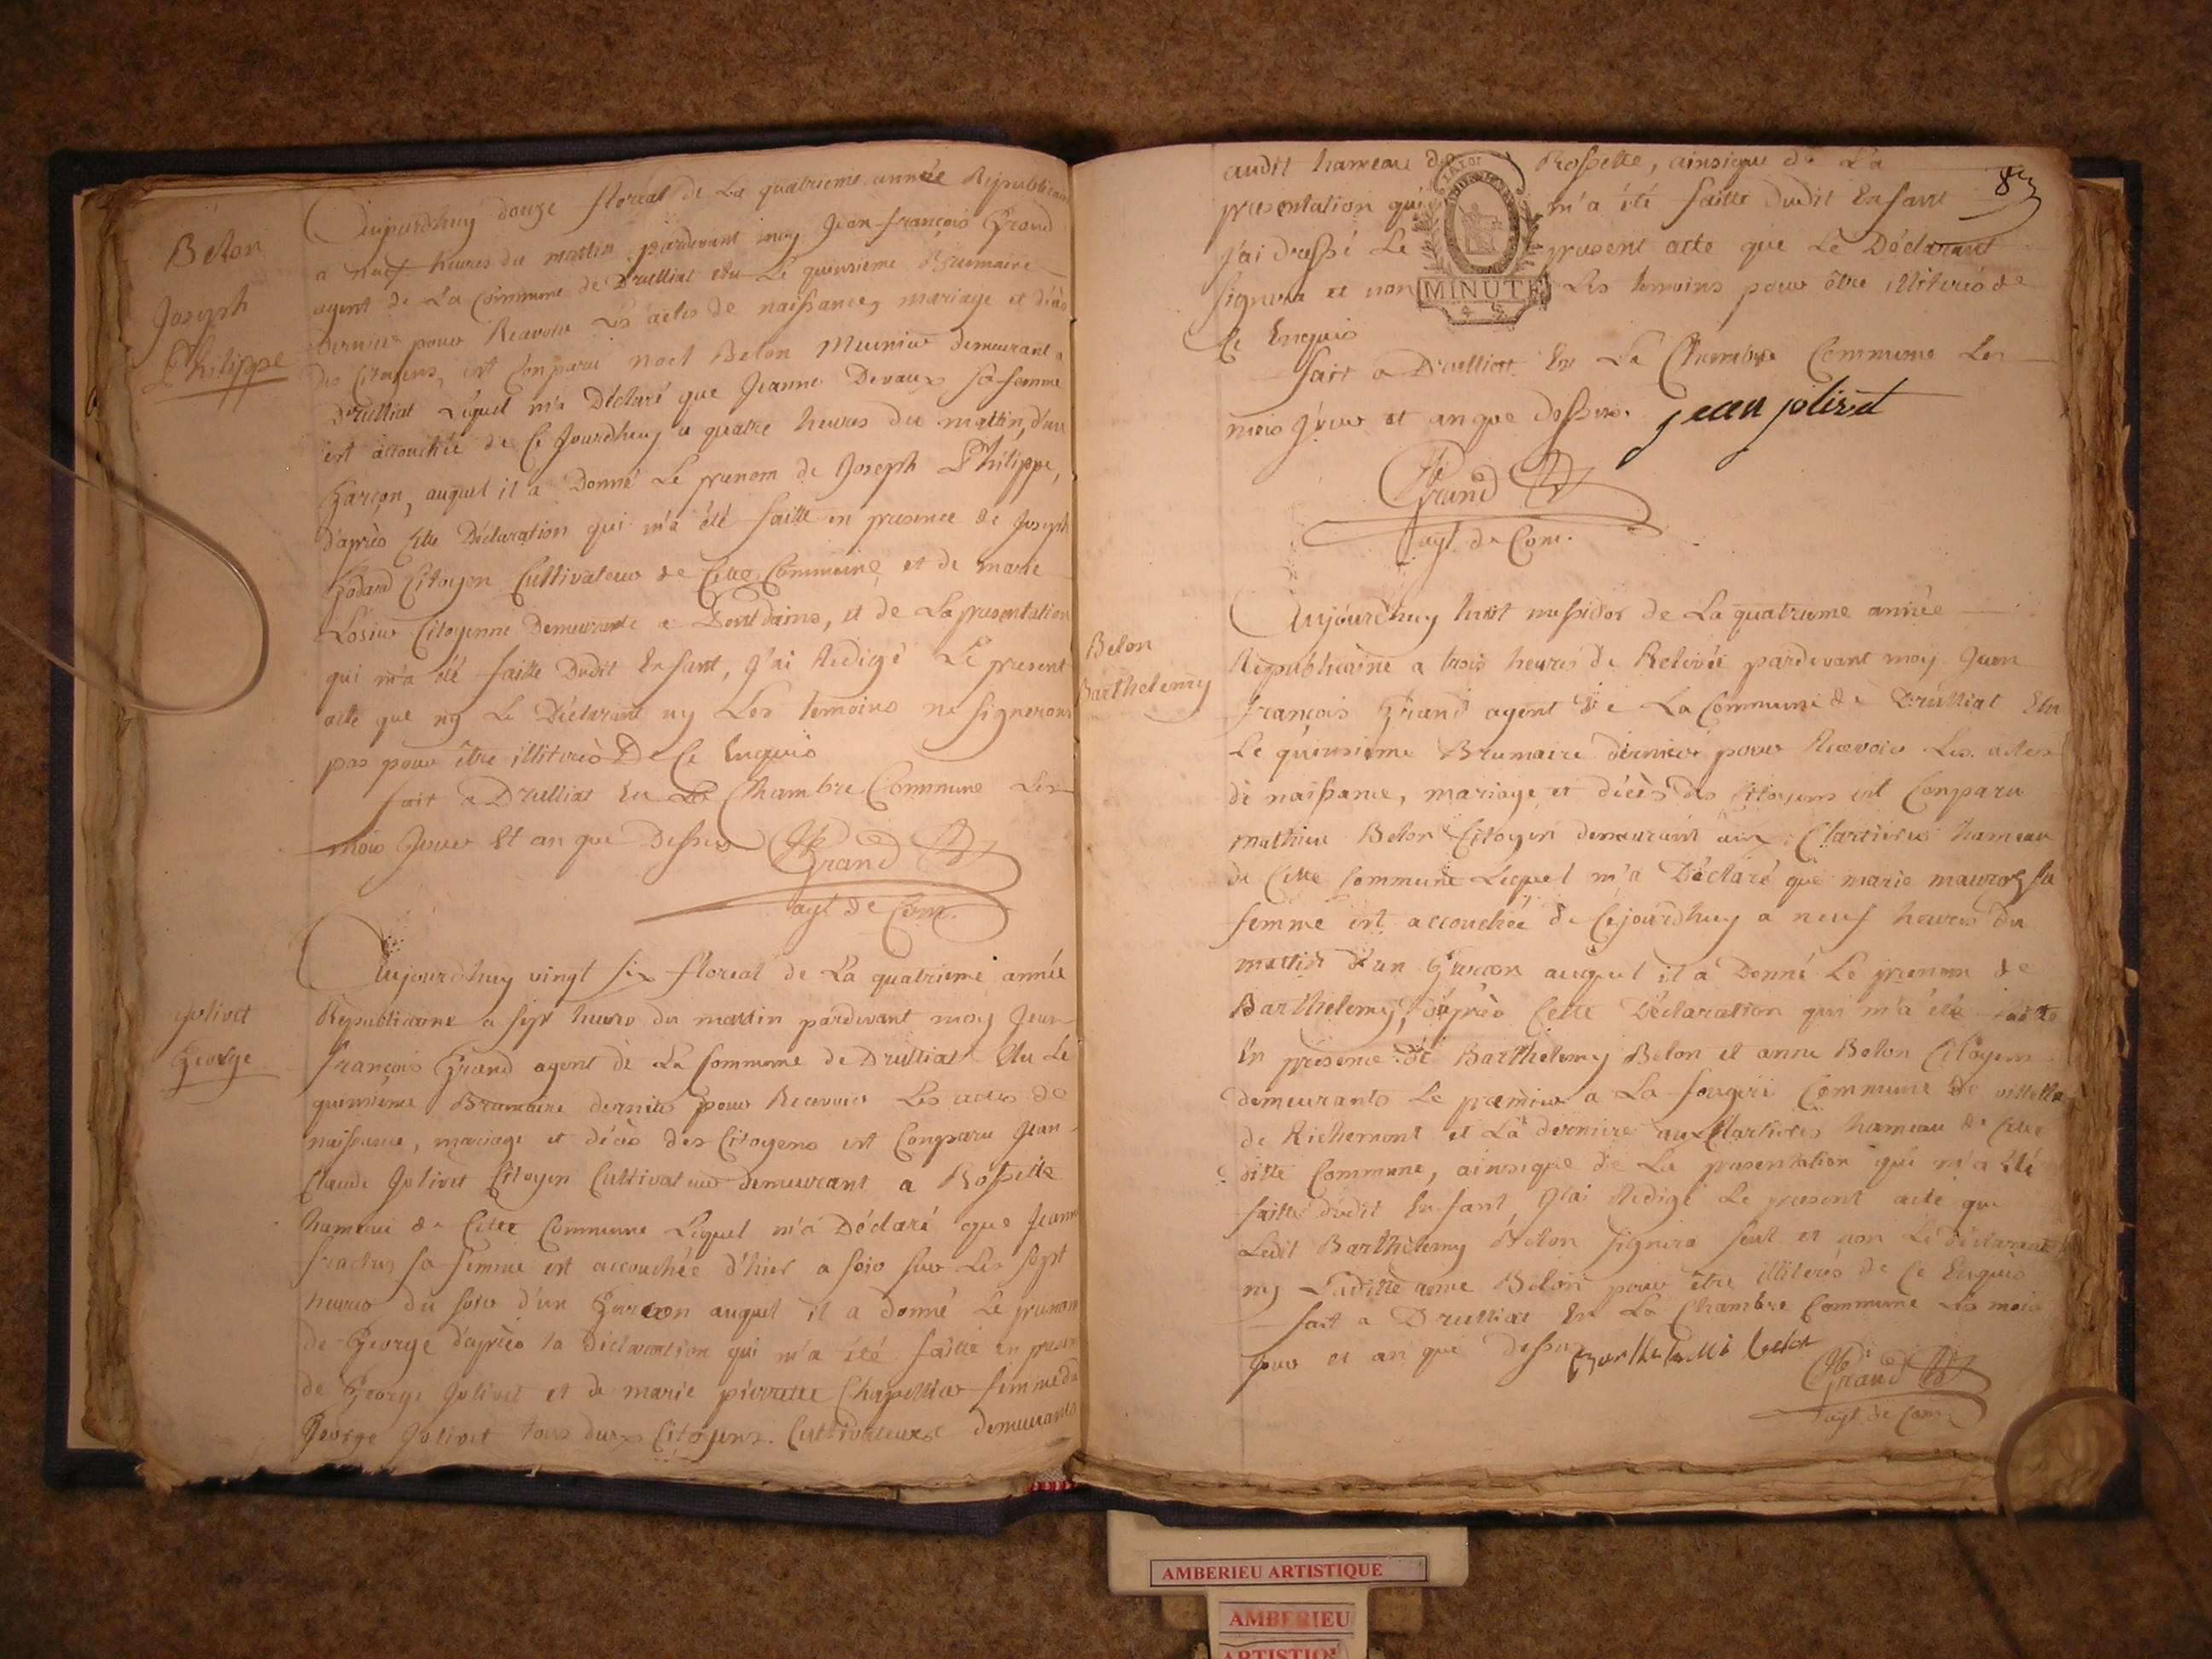 Belon
Joseph
Philippe
Aujourdhuy douze floreal de La quatrieme année Republicaine
a neuf heures du mattin pardevant moy Jean françois Grand
agent de La Commune de Drulliat elu Le quinsieme Brumaire
dernier pour Recevoir Les actes de naissance, mariage et décès
des Citoyens, est Conparu noel Belon Meunier demeurant a
Drulliat Lequel m'a Déclaré que Jeanne Devaux sa femme
est accouchée de Ce Jourdhuy a quatre heures du mattin, d'un
Garçon, auquel il a Donné Le prenom de Joseph Philippe,
d'après Cette Déclaration qui m'a été faitte en presence de Joseph
Godard Citoyen Cultivateur de Cette Commune, et de marie
Citoyenne Demeurante a Dontdains, et de La presentation
qui m'a été faitte Dudit Enfant, J'ai Redigé Le present
acte que ny Le Déclarant ny Les temoins ne signeront
pas pour être illiterés De Ce Enquis
fait a Drulliat En La Chambre Commune Les
mois Jour Et an que Dessus
Grand
agt de Com.
Jolivet
George
Aujourdhuy vingt six floreal de La quatrieme année
Republicaine a sept heures du mattin pardevant moy Jean
françois Grand agent de La Commune de Drulliat Elu Le
quinsieme Brumaire dernier pour Recevoir Les actes de
naissance, mariage et décès des Citoyens est Conparu Jean
Claude Jolivet Citoyen Cultivateur demeurant a Rossette
hameau de Cette Commune Lequel m'a Déclaré que Jeanne
sa femme est accouchée d'hier a soir sur Les sept
heures du soir d'un Garcon auquel il a donné Le prenom
de George d'après la Déclaration qui m'a été faitte en presence
de George Jolivet et de marie pierrette Chapellier femme du
George Jolivet tous deux Citoyens Cultivateurs demeurants
audit hameau de Rossette, ainsique de La
presentation qui m'a été faitte dudit Enfant
J'ai dressé Le present acte que Le Déclarant
signera et non Les temoins pour être illiterés de
Ce Enquis
LA LOI
MINUTE
fait a Drulliat En La Chambre Commune Les
mois Jour et an que dessus. jean jolivet
Grand
agt de Com.
Belon
Barthelemy
Aujourdhuy huit messidor de La quatrieme année
Republicaine a trois heures de Relevée pardevant moy Jean
françois Grand agent de La Commune de Drulliat Elu
Le quinsieme Brumaire dernier pour Recevoir Les actes
de naissance, mariage et décès des Citoyens est Conparu
mathieu Belon Citoyen demeurant aux hameau
de Cette Commune Lequel m'a Déclaré que marie sa
femme est accouchée de Cejourdhuy a neuf heures du
mattin d'un Garcon auquel il a Donné Le prenom de
Barthelemy, d'après Cette Déclaration qui m'a été faitte
En presence de Barthelemy Belon et anne Belon Citoyens
demeurants Le premier a La fougere Commune de villette
de Richemont et La derniere aux hameau de Cette
ditte Commune, ainsique de La presentation qui m'a été
faitte dudit Enfant, J'ai Redigé Le present acte que
Ledit Barthelemy Belon signera seul et non Le déclarant
ny Laditte anne Belon pour être illiterés de Ce Enquis
fait a Drulliat En La Chambre Commune Les mois
Jour et an que dessus
Grand
agt de Com.
AMBERIEU ARTISTIQUE
AMBERIEU
ARTISTIQUE